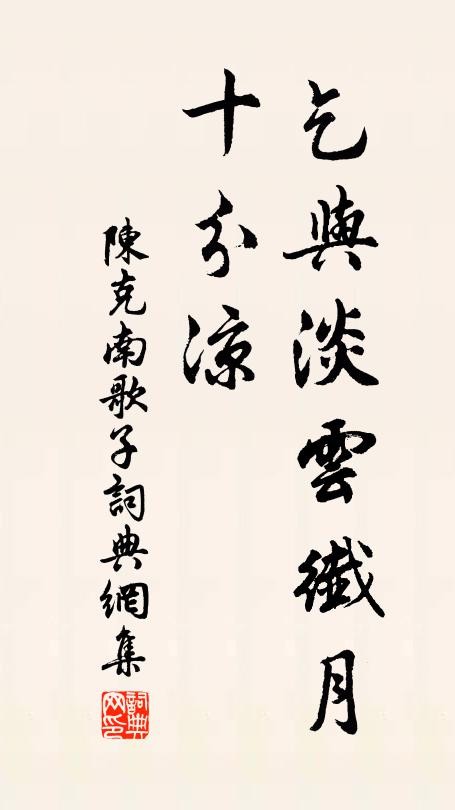 乞與淡雲纖月
十分涼
陳克南歌子詞典網集
詞典
网印